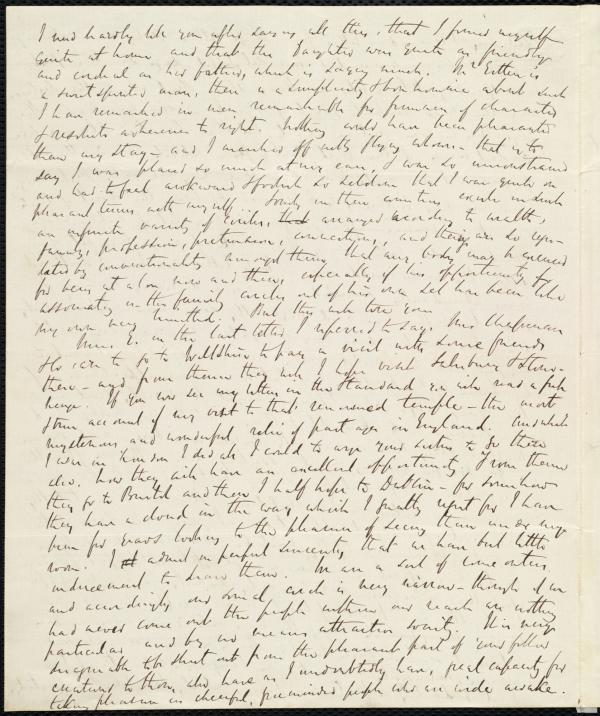 I need hardly tell you after saying all this, that I found myself
quite at home and that the daughter was quite as friendly
and cordial as her father, which is saying much. Mr Estlin is
a sweet spirited man, there is a simplicity & bonhommie about such
I have remarked in men remarkable for firmness of character
& resolute adherence to right. Nothing could have been pleasanter
than my stay — and I marched off with flying colours — that is to
say I was placed so much at my ease, I was so unconstrained
and had to feel awkward & foolish so seldom that I was quite on
pleasant terms with myself. Society in these countries exists in such
an infinite variety of circles, arranged according to wealth,
family, profession, pretension, connections, and they are so regu-
lated by conventionality amongst them that any body may be excused
for being at a loss now and then, especially if his opportunity for
associating in the family circles out of his own set has been like
my own very limited. But this will tire you.
Miss E. in the last letter I referred to says, Mrs Chapman
& Co are to go to Wiltshire to pay a visit with some friends
there — and from thence they will I hope visit Salisbury & Stone-
henge. If you see my letters in the Standard you will read a
account of my visit to that renowned temple — the most
mysterious and wonderful relic of past ages in England. And while
I was in London I did all I could to urge your sisters to go there
also. Now they will have an excellent opportunity. From thence
they go to Bristol and then I half hope to Dublin — for somehow
they have a cloud in the way which I greatly regret for I have
been for years looking to the pleasure of seeing them under my
roof. I admit in perfect sincerity that we have but little
inducement to draw them. We are a sort of come outers
and accordingly our social circle is very narrow — though if we
had never come out the people within our reach are nothing
particular and by no means attractive society. It is very
disagreeable to be shut out from the pleasant part of your fellow
creatures to those who have as I undoubtedly have, great capacity for
taking pleasure in cheerful, free minded people who are wide awake.